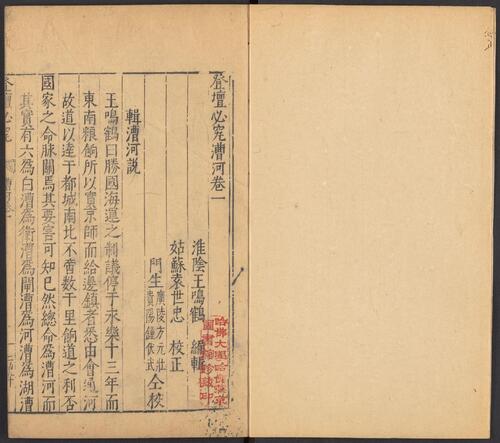 登壇必究漕河卷一
淮陰王鳴鶴 編輯
姑蘇袁世忠 校正
門生廣陵方元壯
貴陽鍾伏武仝校
輯漕河説
王鳴鶴曰勝國海運之制議停于永樂十三年而
東南糧餉所以實京師而給邊鎮者悉由會通河
故道以達于都城南北不啻數千里餉道之利否
國家之命脉關焉其要害可知已然總命爲漕河而
其實有六爲白漕爲衛漕爲閘漕爲河漕爲湖漕
登壇必究
哈佛大學哈佛燕京
圖書館珍藏印